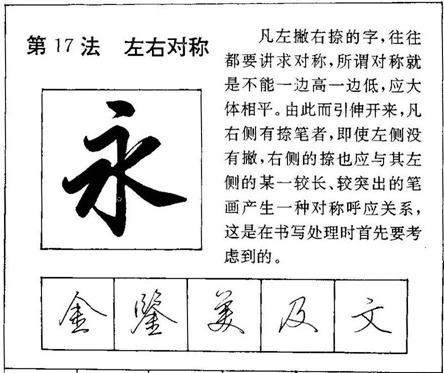 第17法 左右对称
凡左撇右捺的字，往往
都要讲求对称，所谓对称就
是不能一边高一边低，应大
体相平。由此而引伸开来，凡
右侧有捺笔者，即使左侧没
有撇，右侧的捺也应与其左
侧的某一较长、较突出的笔
画产生一种对称呼应关系，
这是在书写处理时首先要考
虑到的。
永
金 鉴 美 及 文